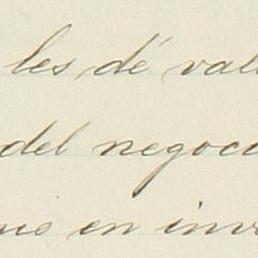 les dé val
del negoc
en inv